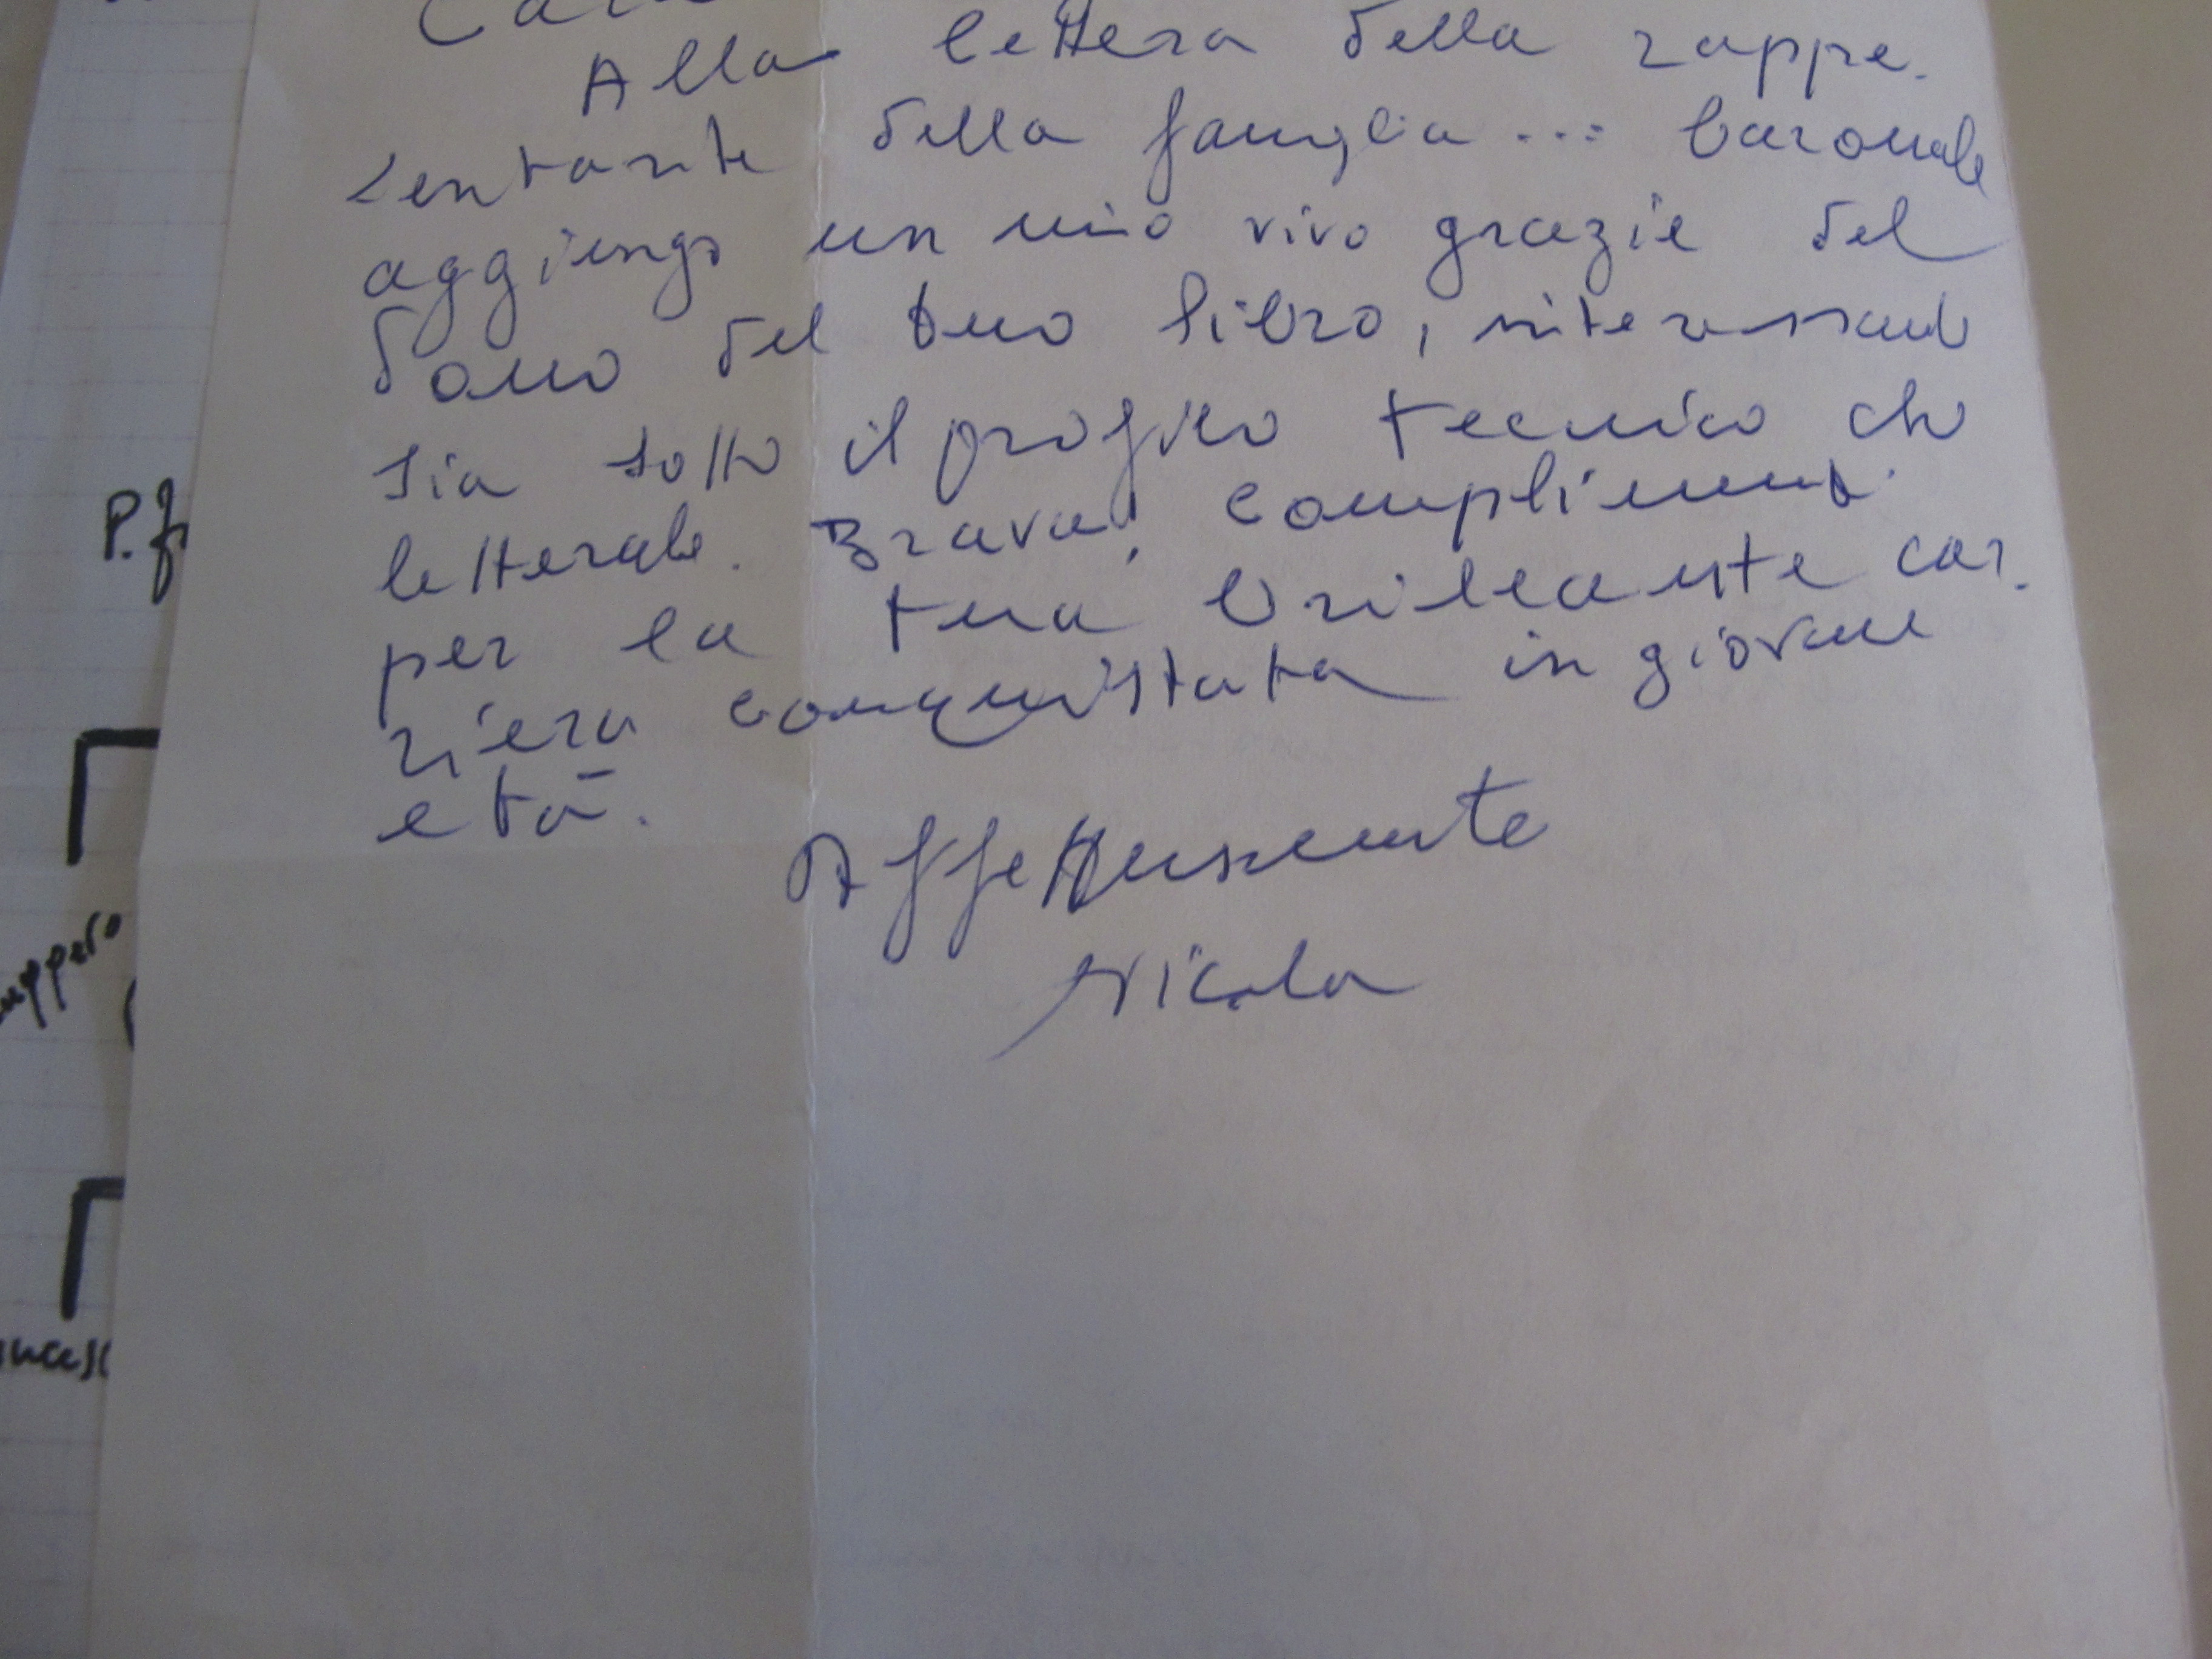 Alla lettera della rappre-
sentante della famiglia ... baronale
aggiungo un mio vivo grazie del
dono del tuo libro, interessante
sia sotto il profilo tecnico che
letterale. Brava! complimenti
per la tua brillante car-
riera conquistata in giovane
età.
Affettuosamente
Nicola
P.